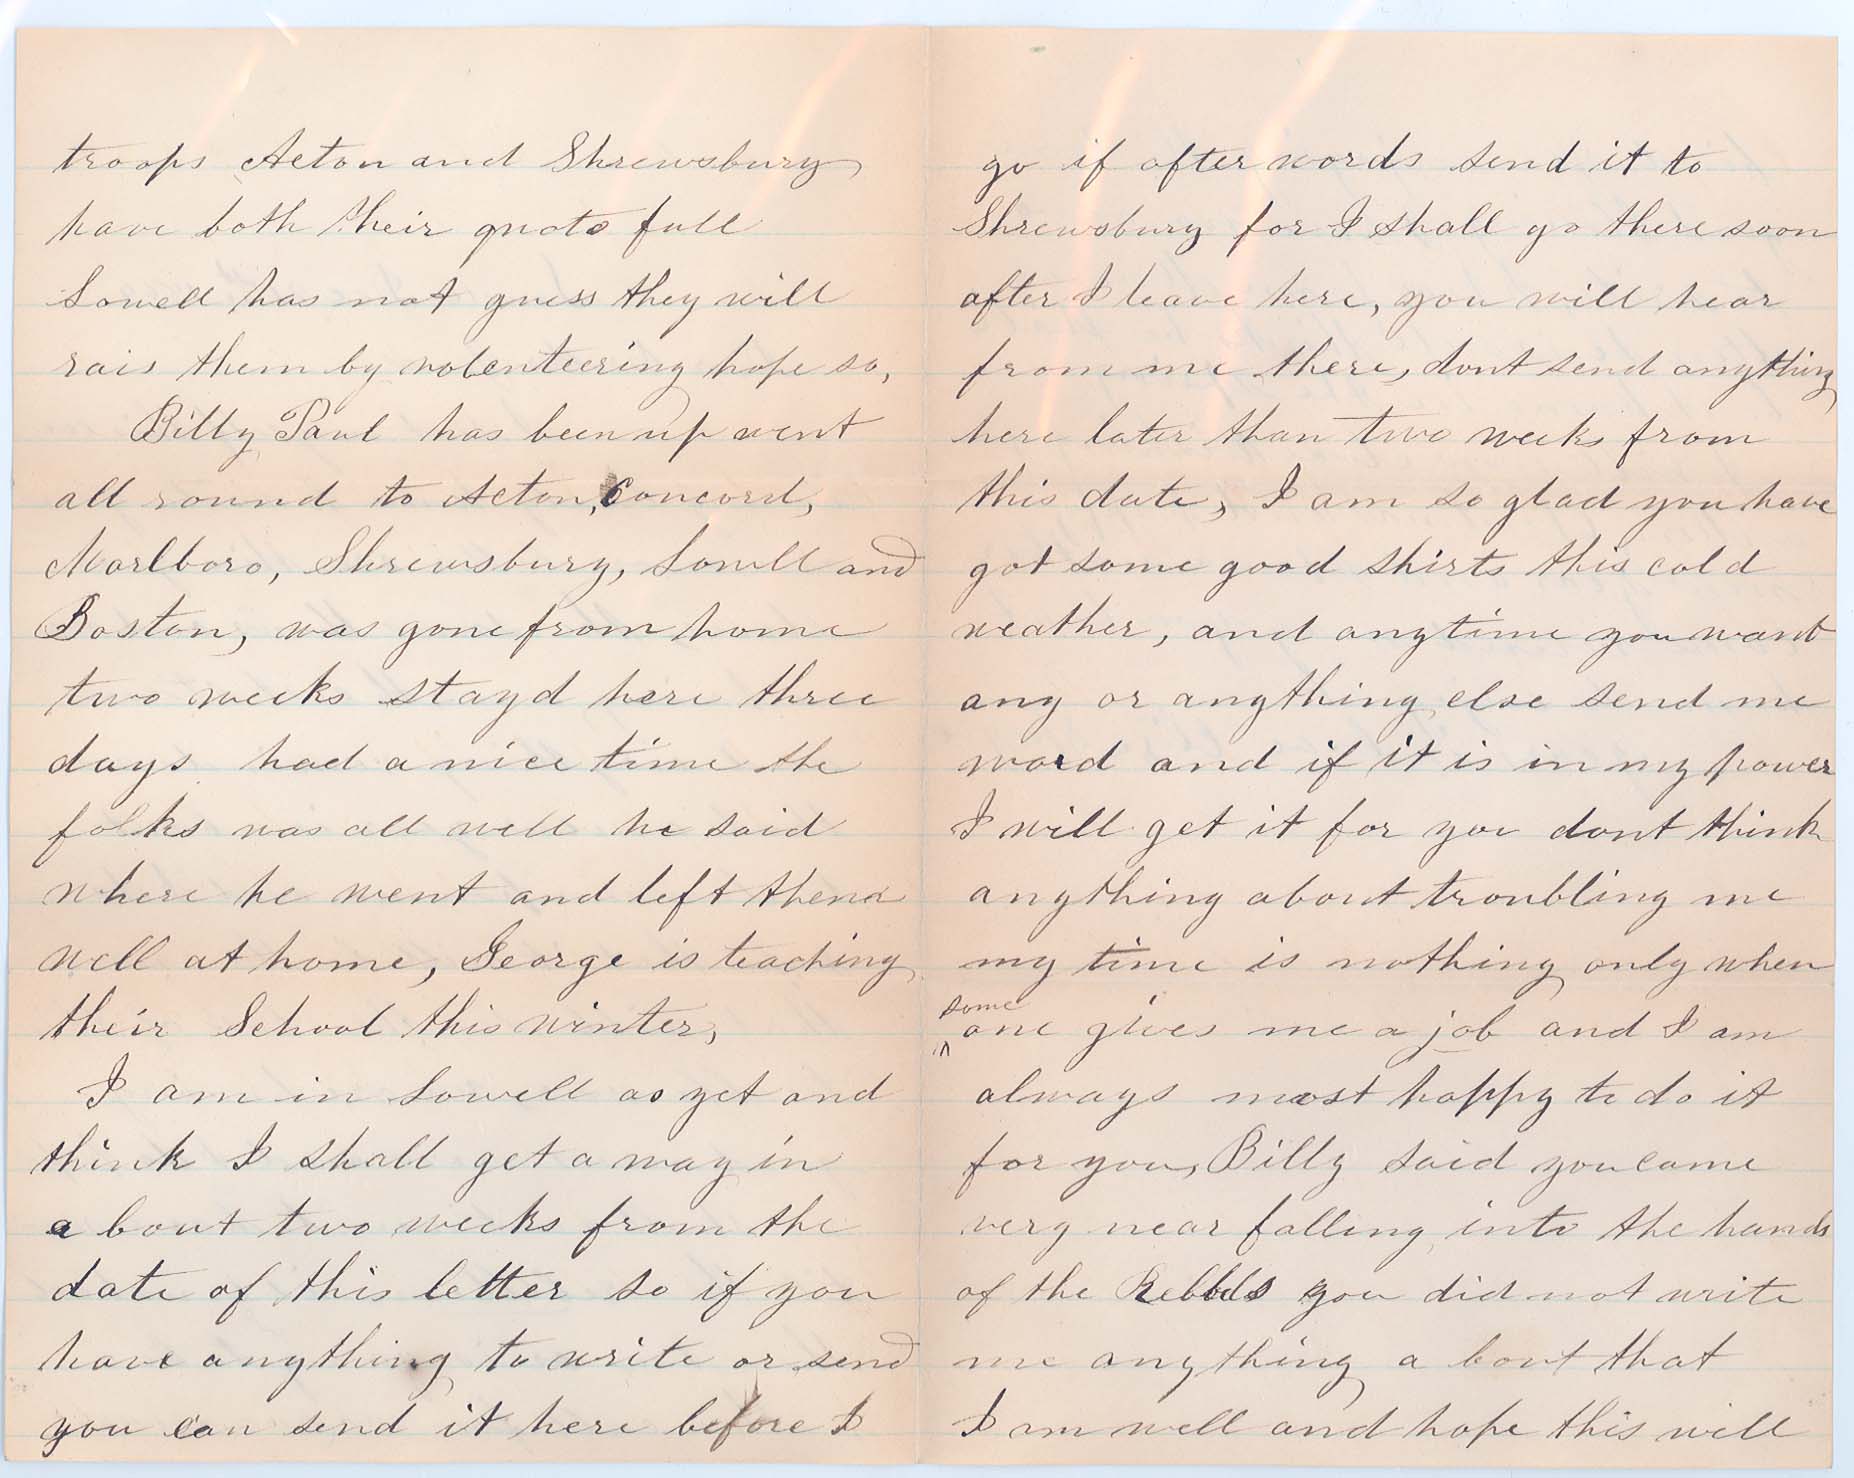 troops Acton and Shrewsbury
have both their quota full
Lowell has not guess they will
rais them by volenteering hope so,
Billy Paul has been up went
all round to Acton, Concord,
Marlboro, Shrewsbury, Lowell and
Boston, was gone from home
two weeks stayd here three
days had a nice time the
folks was all well he said
where he went and left them
well at home, George is teaching
their School this winter,
I am in Lowell as yet and
think I shall get a way in
a bout two weeks from the
date of this letter so if you
have anything to write or send
you can send it here before I
go if after words send it to
Shrewsbury for I shall go there soon
after I leave here, you will hear
from me there, dont send anything
here later than two weeks from
this date, I am so glad you have
got some good shirts this cold
weather, and anytime you want
any or anything else send me
word and if it is in my power
I will get it for you dont think
anything about troubling me
my time is nothing only when
some
one gives me a job and I am
always most happy to do it
for you, Billy said you came
very near falling into the hands
of the Rebbels you did not write
me anything a bout that
I am well and hope this will